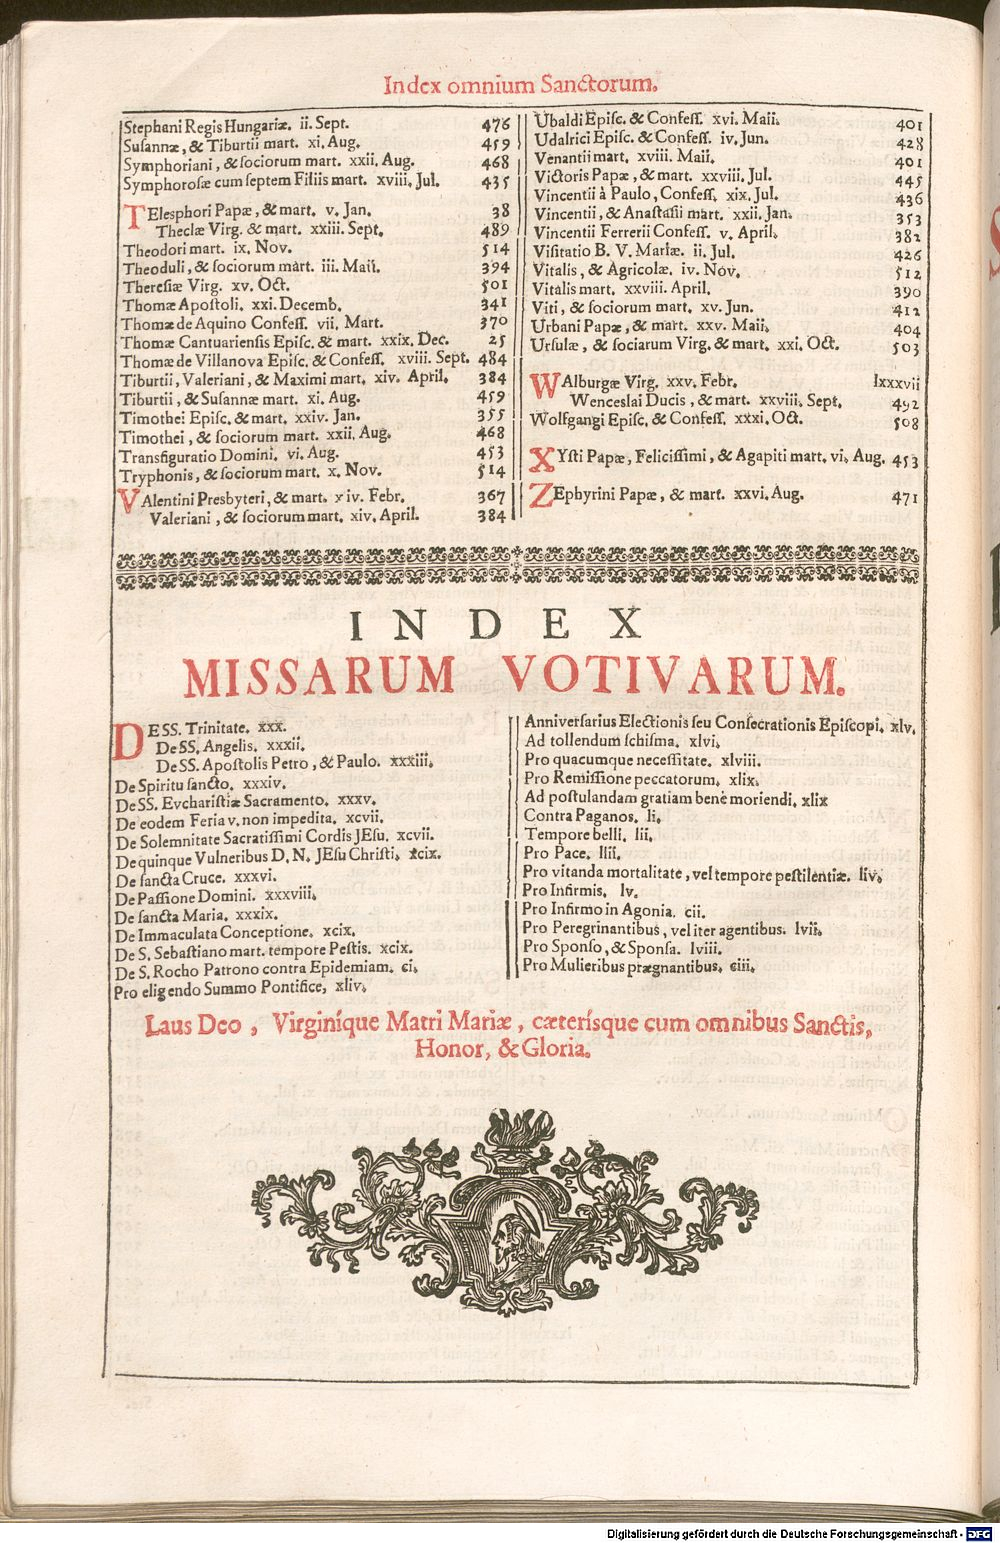 Index omnium Sanctorum.
Stephani Regis Hungariæ. ii. Sept. 476
Susannæ, & Tiburtii mart. xi. Aug. 459
Symphoriani, & sociorum mart. xxii. Aug. 468
Symphorosæ cum septem Filiis mart. xviii. Jul. 435
TElesphori Papæ, & mart. v. Jan. 38
Theclæ Virg. & mart. xxiii. Sept. 489
Theodori mart. ix. Nov. 514
Theoduli, & sociorum mart. iii. Maii. 394
Theresiæ Virg. xv. Oct. 501
Thomæ Apostoli. xxi. Decemb. 341
Thomæ de Aquino Confess. vii. Mart. 370
Thomæ Cantuariensis Episc. & mart. xxix. Dec. 25
Thomæ de Villanova Episc. & Confess. xviii. Sept. 484
Tiburtii, Valeriani, & Maximi mart. xiv. April. 384
Tiburtii, & Susannæ mart. xi. Aug. 459
Timothei Episc. & mart. xxiv. Jan. 355
Timothei, & sociorum mart. xxii. Aug. 468
Transfiguratio Domini. vi. Aug. 453
Tryphonis, & sociorum mart. x. Nov. 514
VAlentini Presbyteri, & mart. xiv. Febr. 367
Valeriani, & sociorum mart. xiv. April. 384
Ubaldi Episc. & Confess. xvi. Maii. 401
Udalrici Episc. & Confess. iv. Jun. 428
Venantii mart. xviii. Maii. 401
Victoris Papæ, & mart. xxviii. Jul. 445
Vincentii à Paulo, Confess. xix. Jul. 436
Vincentii, & Anastasii mart. xxii. Jan. 353
Vincentii Ferrerii Confess. v. April. 382
Visitatio B. V. Mariæ. ii. Jul. 426
Vitalis, & Agricolæ. iv. Nov. 512
Vitalis mart. xxviii. April. 390
Viti, & sociorum mart. xv. Jun. 412
Urbani Papæ, & mart. xxv. Maii. 404
Ursulæ, & sociarum Virg. & mart. xxi. Oct. 503
WAlburgæ Virg. xxv. Febr. lxxxvii
Wenceslai Ducis, & mart. xxviii. Sept. 492
Wolfgangi Episc. & Confess. xxxi. Oct. 508
XYsti Papæ, Felicissimi, & Agapiti mart. vi. Aug. 453
ZEphyrini Papæ, & mart. xxvi. Aug. 471
INDEX
MISSARUM VOTIVARUM.
DE SS. Trinitate. xxx.
De SS. Angelis. xxxii.
De SS. Apostolis Petro, & Paulo. xxxiii.
De Spiritu sancto. xxxiv.
De SS. Evcharistiæ Sacramento. xxxv.
De eodem Feria v. non impedita. xcvii.
De Solemnitate Sacratissimi Cordis JEsu. xcvii.
De quinque Vulneribus D. N. JEsu Christi. xcix.
De sancta Cruce. xxxvi.
De Passione Domini. xxxviii.
De sancta Maria. xxxix.
De Immaculata Conceptione. xcix.
De S. Sebastiano mart. tempore Pestis. xcix.
De S. Rocho Patrono contra Epidemiam. ci.
Pro eligendo Summo Pontifice, xliv.
Anniversarius Electionis seu Consecrationis Episcopi. xlv.
Ad tollendum schisma. xlvi.
Pro quacumque necessitate. xlviii.
Pro Remissione peccatorum. xlix.
Ad postulandam gratiam benè moriendi. xlix
Contra Paganos. li.
Tempore belli. lii.
Pro Pace. liii.
Pro vitanda mortalitate, vel tempore pestilentiæ. liv.
Pro Infirmis. lv.
Pro Infirmo in Agonia. cii.
Pro Peregrinantibus, vel iter agentibus. lvii.
Pro Sponso, & Sponsa. lviii.
Pro Mulieribus prægnantibus. ciii.
Laus Deo, Virginíque Matri Mariæ, cæterísque cum omnibus Sanctis,
Honor, & Gloria.
Digitalisierung gefördert durch die Deutsche Forschungsgemeinschaft - DFG